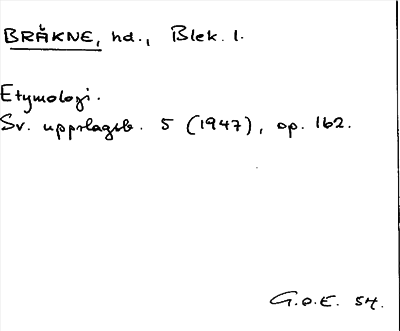 BRÄKNE, hd., Blek. l.
Etymologi.
Sv. uppslagsb. 5 (1947), sp. 162.
G.O.E. 54.